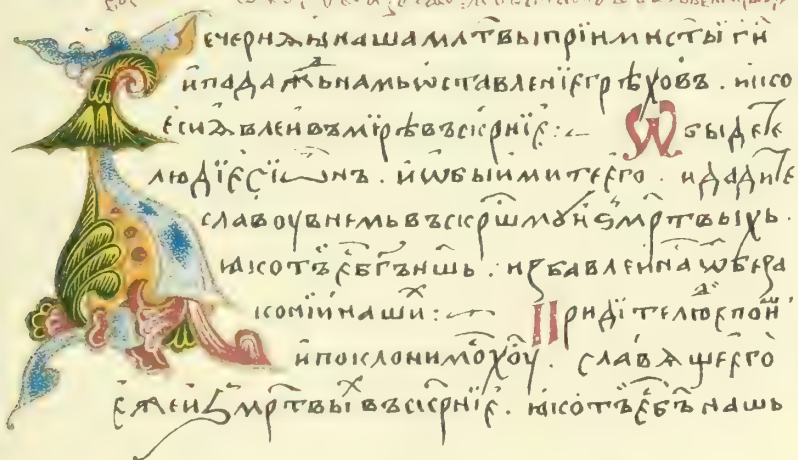 ечернѧѧ наша мл҃твы прїими ст҃ы г҃и
и падаждь намь ѡставленїе грѣховъ . ꙗко
еси ѧвлеи въ мїрѣ въскр҃нїе :~ Ѡбыдѣте
людїе сїѡнъ . и ѡбыимите его . и дадите
славоу в немь въскр҃шмоу из мр҃твыхь .
ꙗко тъ е҃ б҃гъ н҃шь . избавлеи на ѡ беза
конїи наши :~ Придїте людїе пои҃
и поклонимо х҃оу . славѧще его
еже из мр҃твы въскр҃нїе . ꙗко тъ е҃ б҃ъ нашь